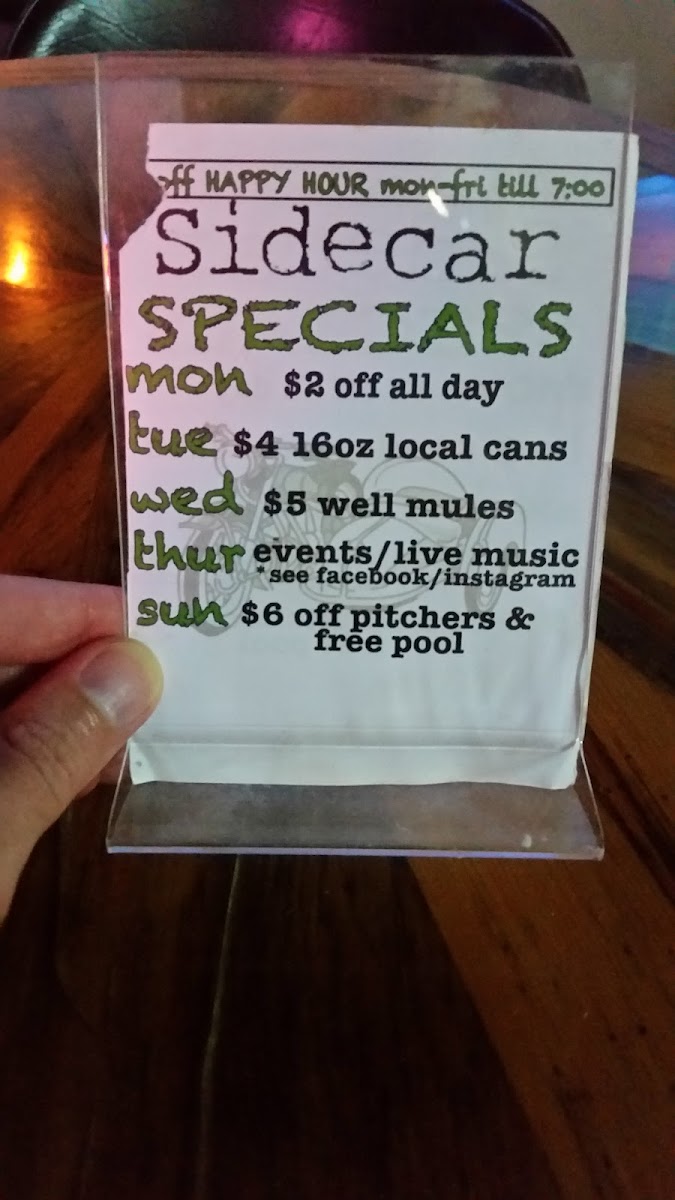 off HAPPY HOUR mon-fri till 7:00
Sidecar
SPECIALS
mon $2 off all day
tue $4 16oz local cans
wed $5 well mules
thur events/live music
*see facebook/instagram
sun $6 off pitchers &
free pool